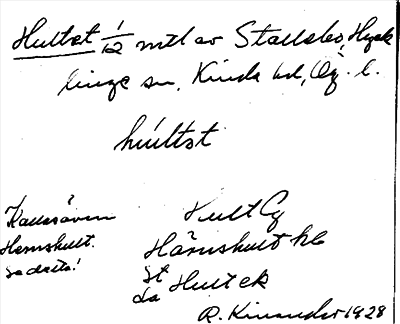 Hultet 1/12 mtl av Stallebo, Hyck
linge sn, Kinda hd, Ög. l.
húltət
Kallas även
Hemshult.
se detta!
Hult Cg
Härnshult hb
st
da Hult ek
R. Kinander 1928